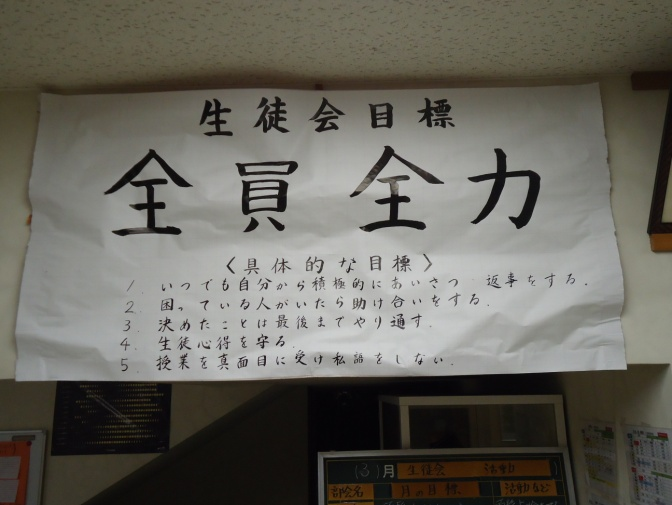 生徒会目標
全員全力
〈具体的な目標〉
1. いつでも自分から積極的にあいさつ・返事をする.
2. 困っている人がいたら助け合いをする.
3. 決めたことは最後までやり通す.
4. 生徒心得を守る.
5. 授業を真面目に受け私語をしない.
(3)月 生徒会 活動
部会名 月の目標 活動など